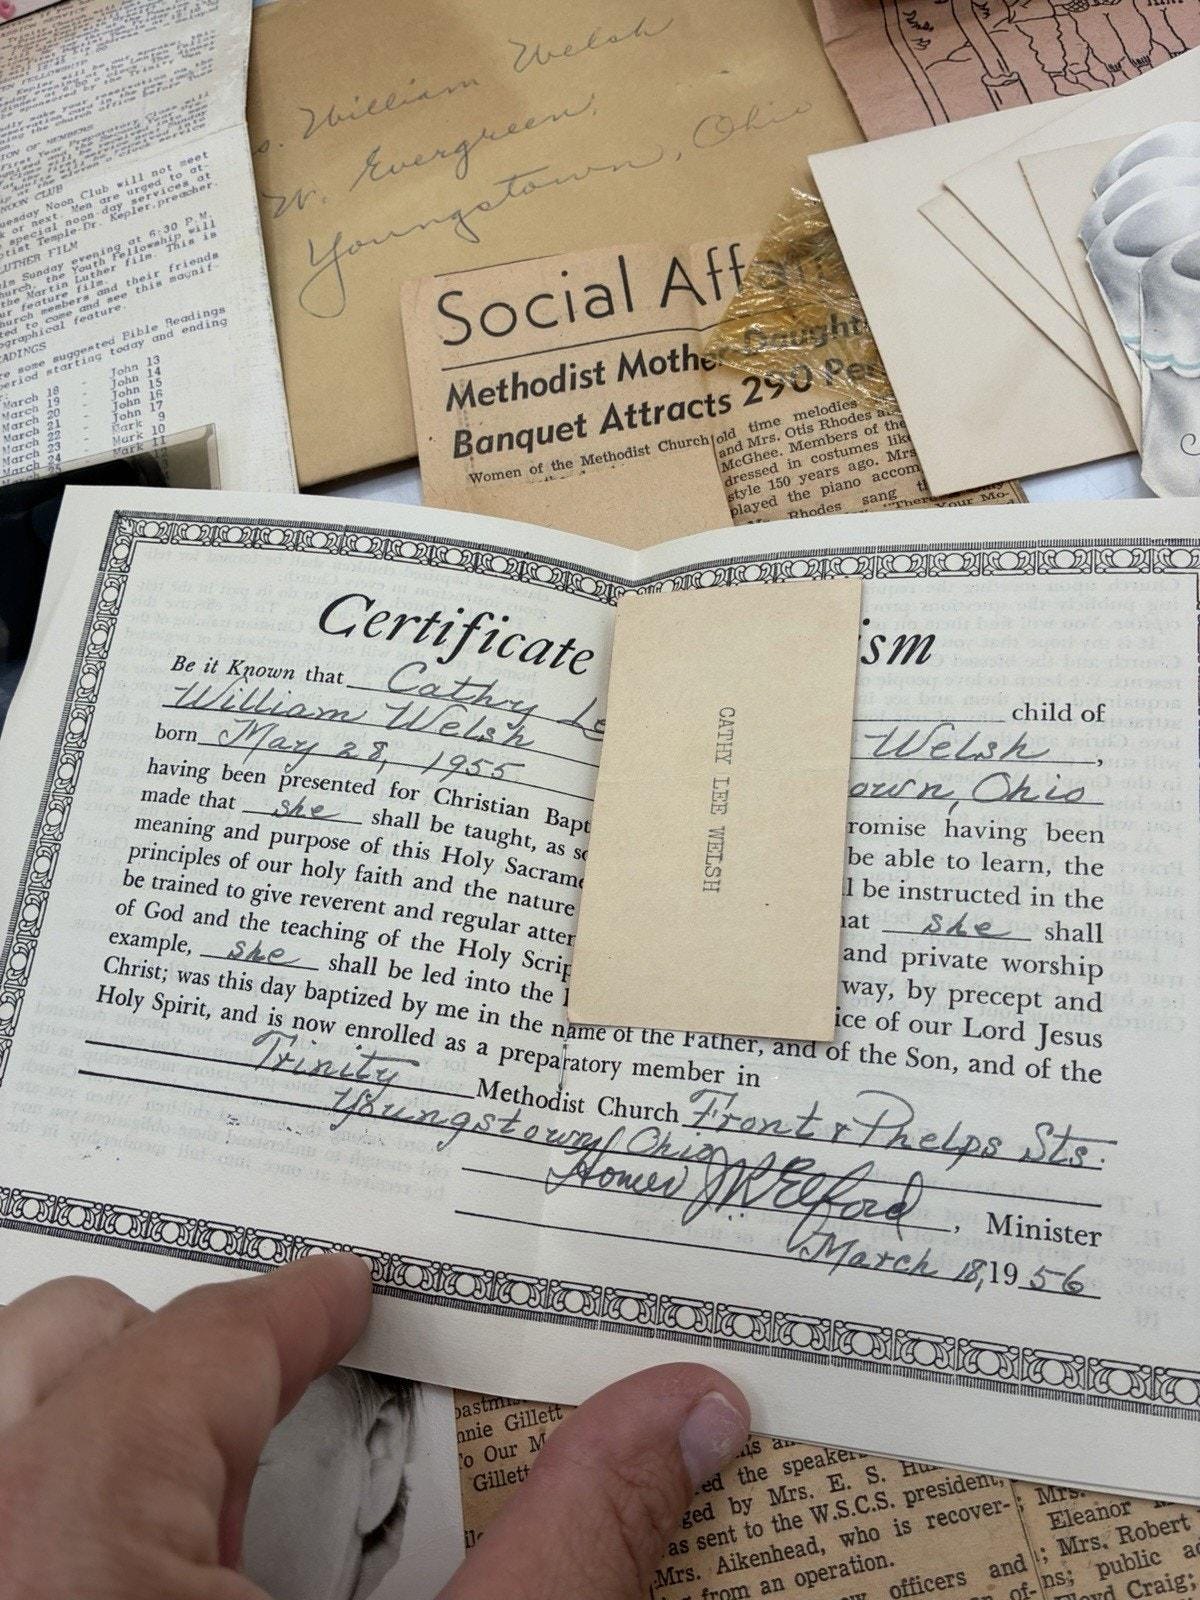 William Welsh
W. Evergreen,
Youngstown, Ohio
TION OF MEMBERS
First Year Preparatory Class will
NOON CLUB
Tuesday Noon Club will not meet
or next. Men are urged to at-
special noon-day services at
Temple-Dr. Kepler, preacher.
LUTHER FILM
Sunday evening at 6:30 P.M.
church, the Youth Fellowship will
the Martin Luther film. This is
our feature film.
church members and their friends
to come and see this magnif-
ographical feature.
READINGS
are some suggested Bible Readings
period starting today and ending
March 18 - John 13
March 19 - John 14
March 20 - John 15
March 21 - John 16
March 22 - John 17
March 23 - Mark 9
March 24 - Mark 10
Social Affairs
Methodist Mother-Daughter
Banquet Attracts 290 Per
Women of the Methodist Church
old time melodies
and Mrs. Otis Rhodes
McGhee. Members of the
dressed in costumes like
style 150 years ago. Mrs.
played the piano accom
Rhodes sang
Your Mo-
Certificate ism
Be it Known that Cathy Le child of
William Welsh Welsh,
born May 28, 1955 own, Ohio
having been presented for Christian Bapt romise having been
made that she shall be taught, as so be able to learn, the
meaning and purpose of this Holy Sacrame l be instructed in the
principles of our holy faith and the nature hat she shall
be trained to give reverent and regular atten and private worship
of God and the teaching of the Holy Scrip way, by precept and
example, she shall be led into the ice of our Lord Jesus
Christ; was this day baptized by me in the name of the Father, and of the Son, and of the
Holy Spirit, and is now enrolled as a preparatory member in
Trinity Methodist Church Front & Phelps Sts.
Youngstown, Ohio
Homer J R Elford, Minister
March 18, 1956
CATHY LEE WELSH
nnie Gillett
To Our M
Gillett
the speaker
ged by Mrs. E. S.
as sent to the W.S.C.S. president,
Mrs. Aikenhead, who is recover-
from an operation.
officers and
Mrs.
Eleanor
Mrs. Robert
ns; public
Floyd Craig;